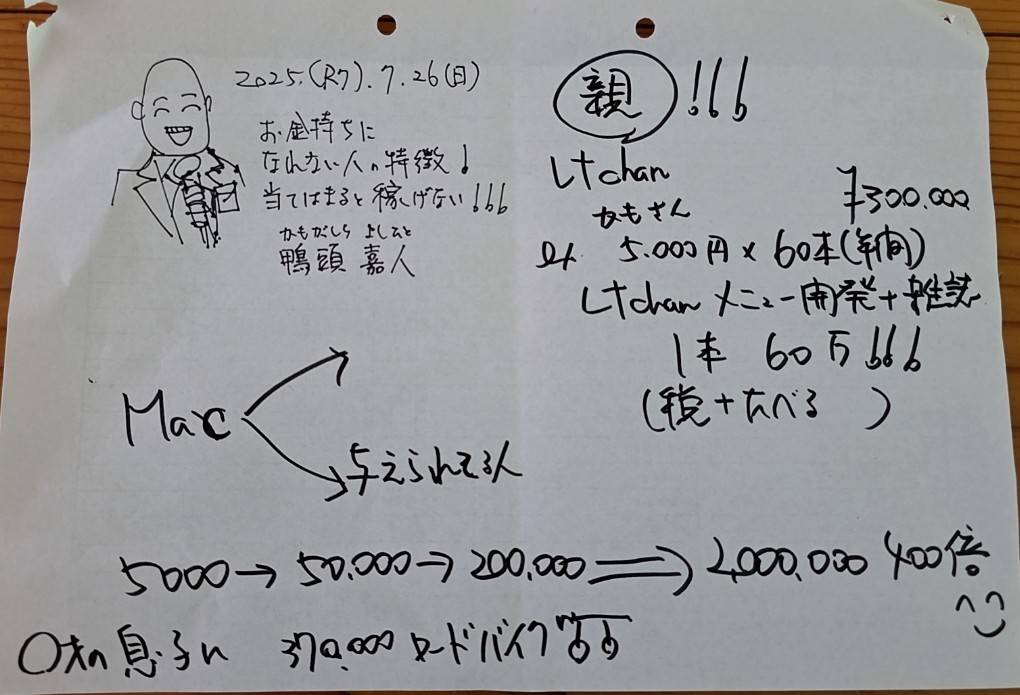 2025.(R7).7.26(日)
お金持ちに
なれない人の特徴!
当てはまると稼げない!!!
かもがしら よしひと
鴨頭 嘉人
親!!!
Ltchan
かもさん
¥300.000
5.000円×60本(年間)
Ltchan メニュー開発+雑誌
1本 60万!!!
(税+たべる )
Mac
与えられてる人
5000→50.000→200.000⇒2,000.000 400倍
〇才の息子に 370.000 ロードバイク